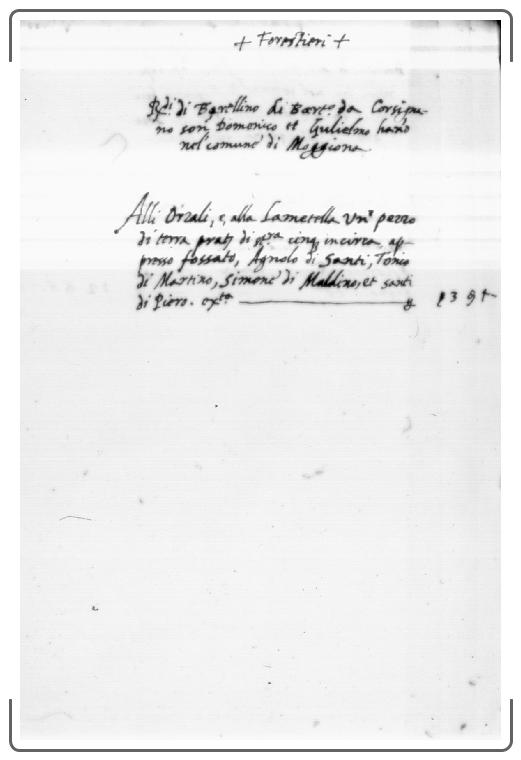 + Forestieri +
Rdi. di Barellino di Barto. da Corsigna-
no son Domenico et Gulielmo hano
nel comune di Moggiona
Alli Orzali, e, alla Lametella Vno pezzo
di terra prati di stra cinq incirca, ap-
presso fossato, Agnolo di Santi, Tonio
di Martino, Simone di Maldino, et santi
di Piero. exta